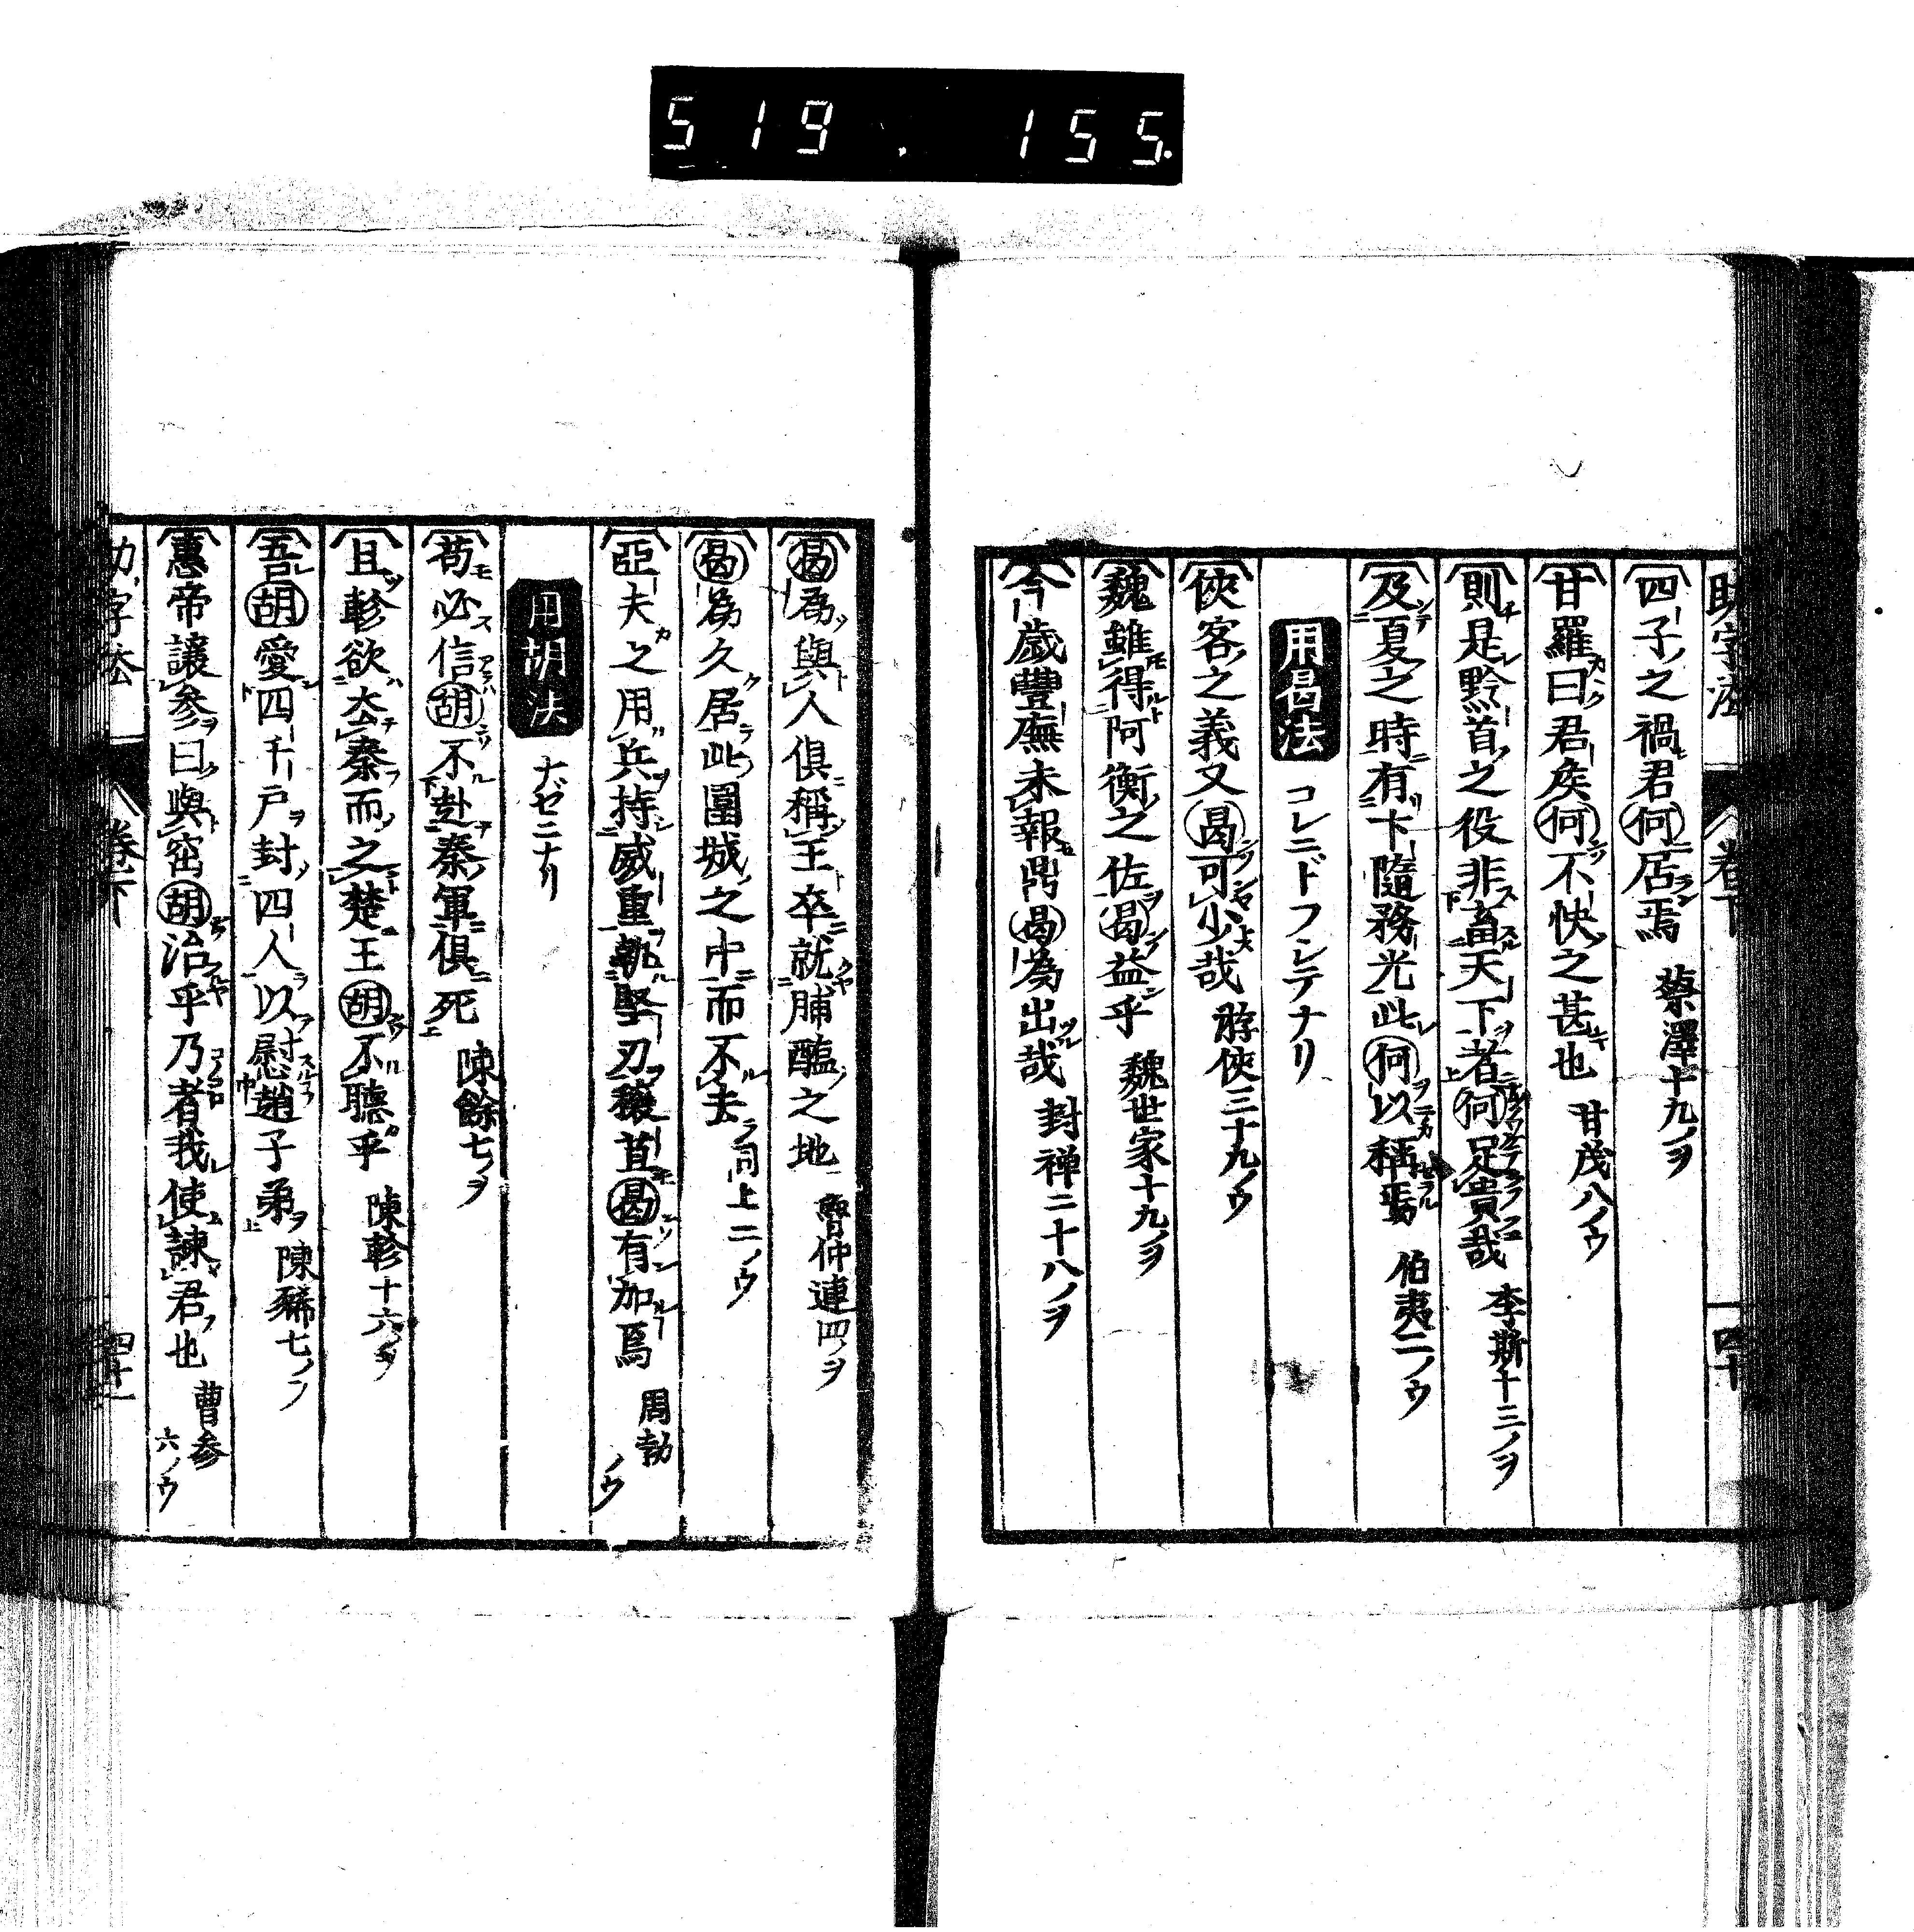 519. 155.
助字法 卷下 四十
四子之禍君何居焉 蔡澤十九ノヲ
甘羅曰君矦何不快之甚也 甘茂八ノウ
則是黔首之役非畜天下者何足貴哉 李斯十三ノヲ
及夏之時有卞隨務光此何以稱焉 伯夷二ノウ
用曷法 コレニドフシテナリ
俠客之義又曷可少哉 游俠三十九ノウ
魏雖得阿衡之佐曷益乎 魏世家十九ノヲ
今歲豐廡未報鼎曷為出哉 封禅二十八ノヲ
曷為與人俱稱王卒就脯醢之地 魯仲連四ノヲ
曷為久居此圍城之中而不去 同上二ノウ
亞夫之用兵持威重執堅刃穰苴曷有加焉 周勃 ノウ
用胡法 ナゼニナリ
苟必信胡不赴秦軍俱死 陳餘七ノヲ
且軫欲去秦而之楚王胡不聽乎 陳軫十六ノヲ
吾胡愛四千戸封四人以慰趙子弟 陳豨七ノ
惠帝讓参曰與窋胡治乎乃者我使諫君也 曹参 六ノウ
助字法 卷下 四十一